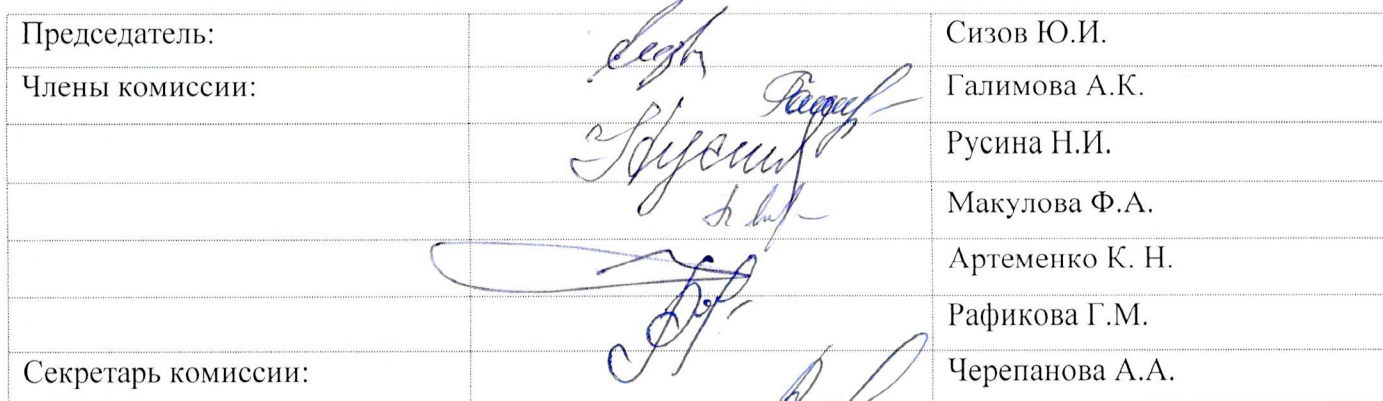 Председатель: Сизов Ю.И.
Члены комиссии: Галимова А.К.
Русина Н.И.
Макулова Ф.А.
Артеменко К. Н.
Рафикова Г.М.
Секретарь комиссии: Черепанова А.А.